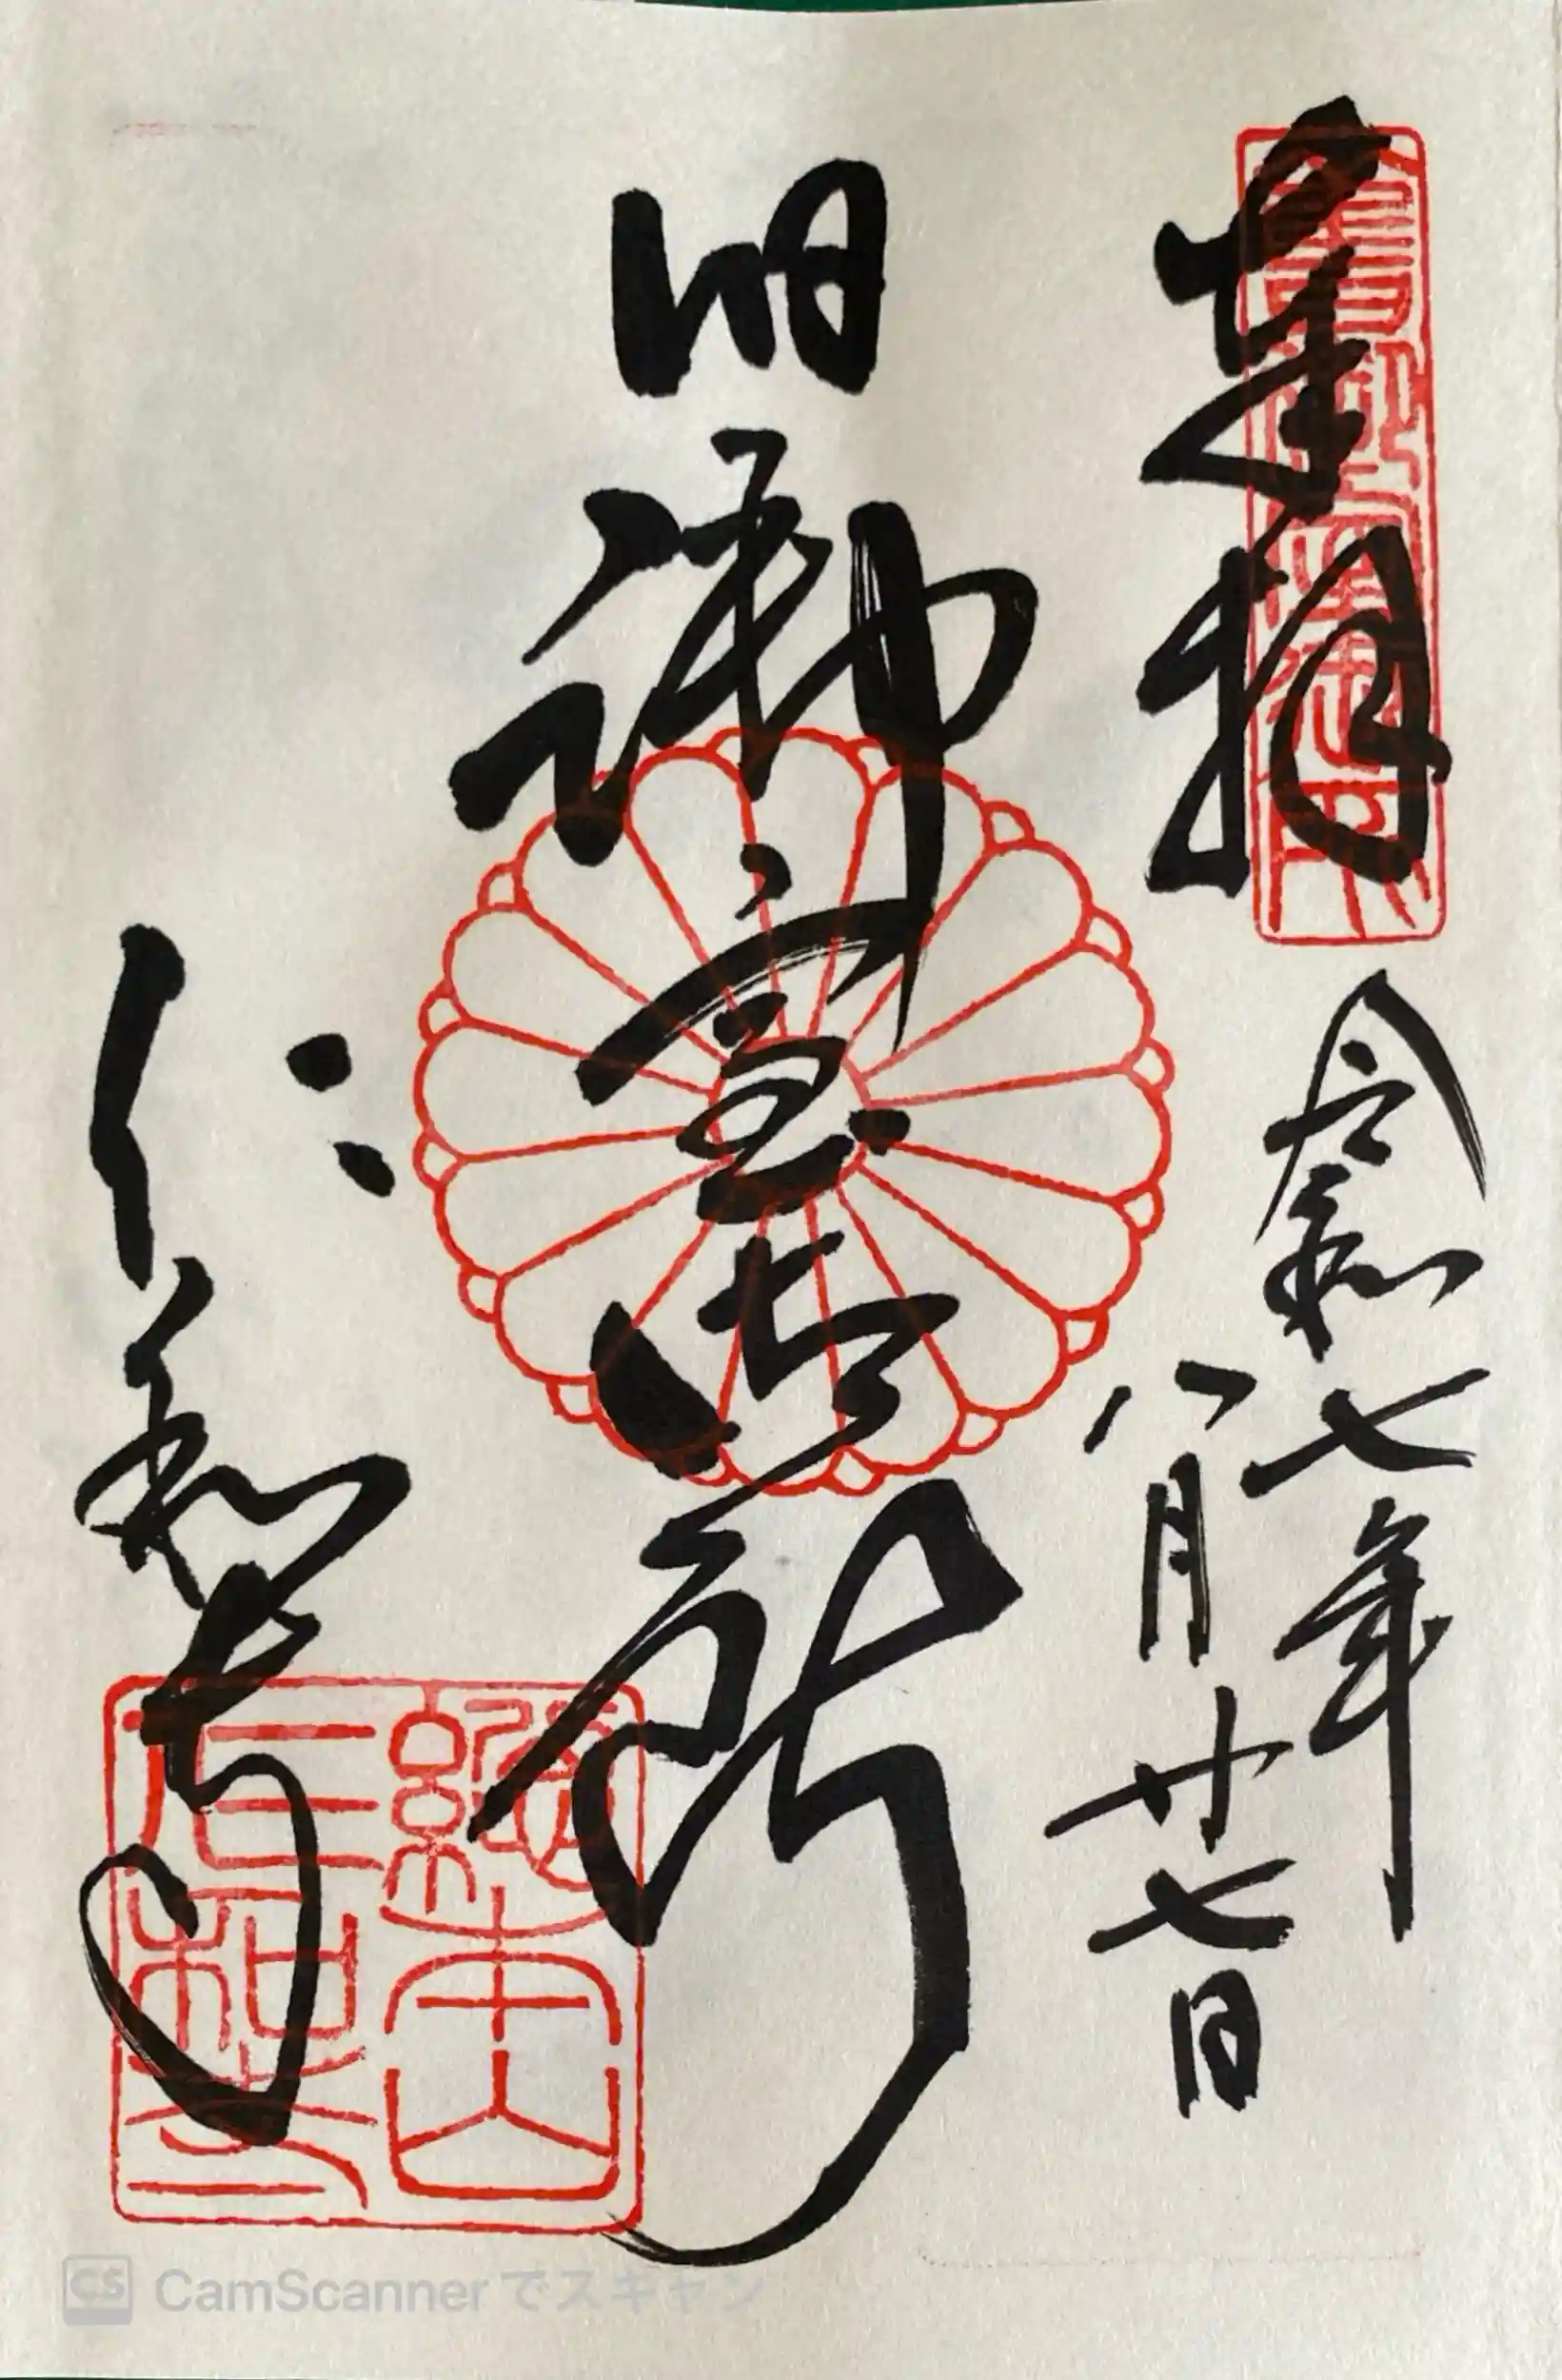 奉拝
令和七年
八月廿七日
旧御室御所
仁和寺
總本山
仁和寺
CamScannerでスキャン